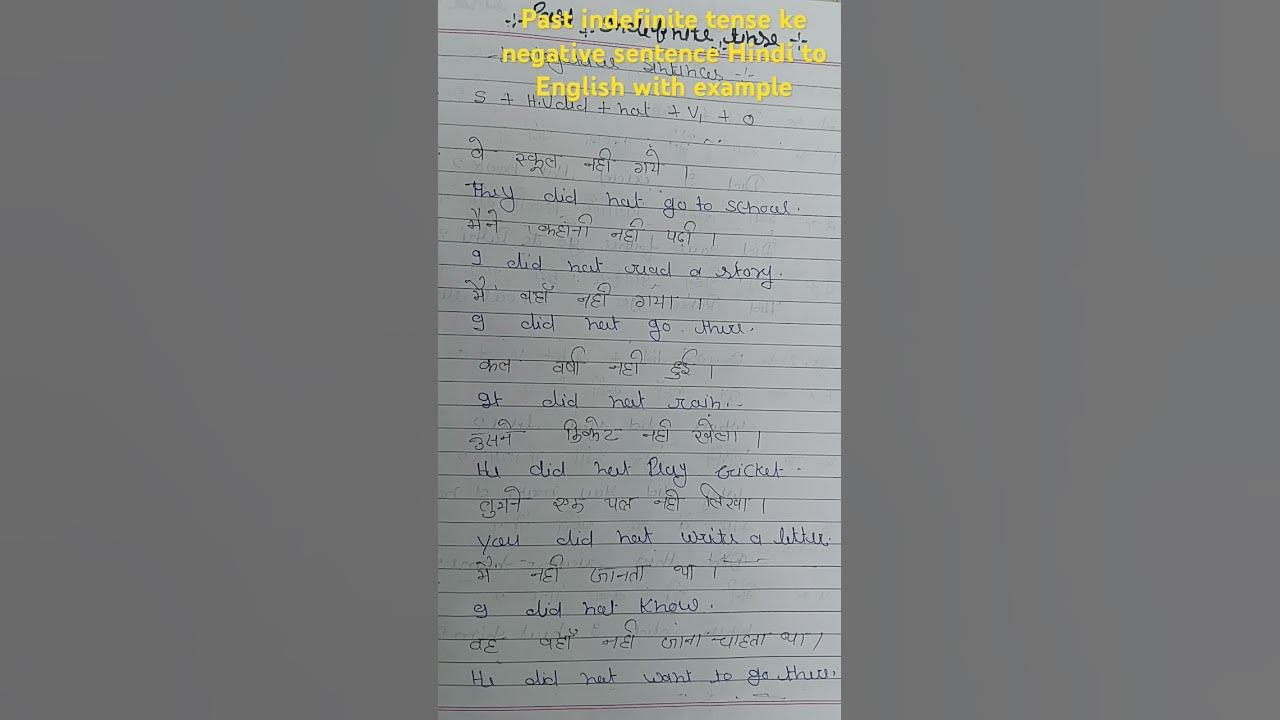 Past indefinite tense ke
negative sentence Hindi to
English with example
-:- Past indefinite tense -:-
sentences -:-
S + H.V did + not + V1 + O
वे स्कूल नही गये ।
They did not go to school.
मैने कहानी नही पढ़ी ।
I did not read a story.
मै वहाँ नही गया ।
I did not go there.
कल वर्षा नही हुई ।
It did not rain.
उसने क्रिकेट नही खेला ।
He did not Play cricket.
तुमने एक पत्र नही लिखा ।
You did not write a letter.
मै नही जानता था ।
I did not Know.
वह वहाँ नही जाना चाहता था ।
He did not want to go there.